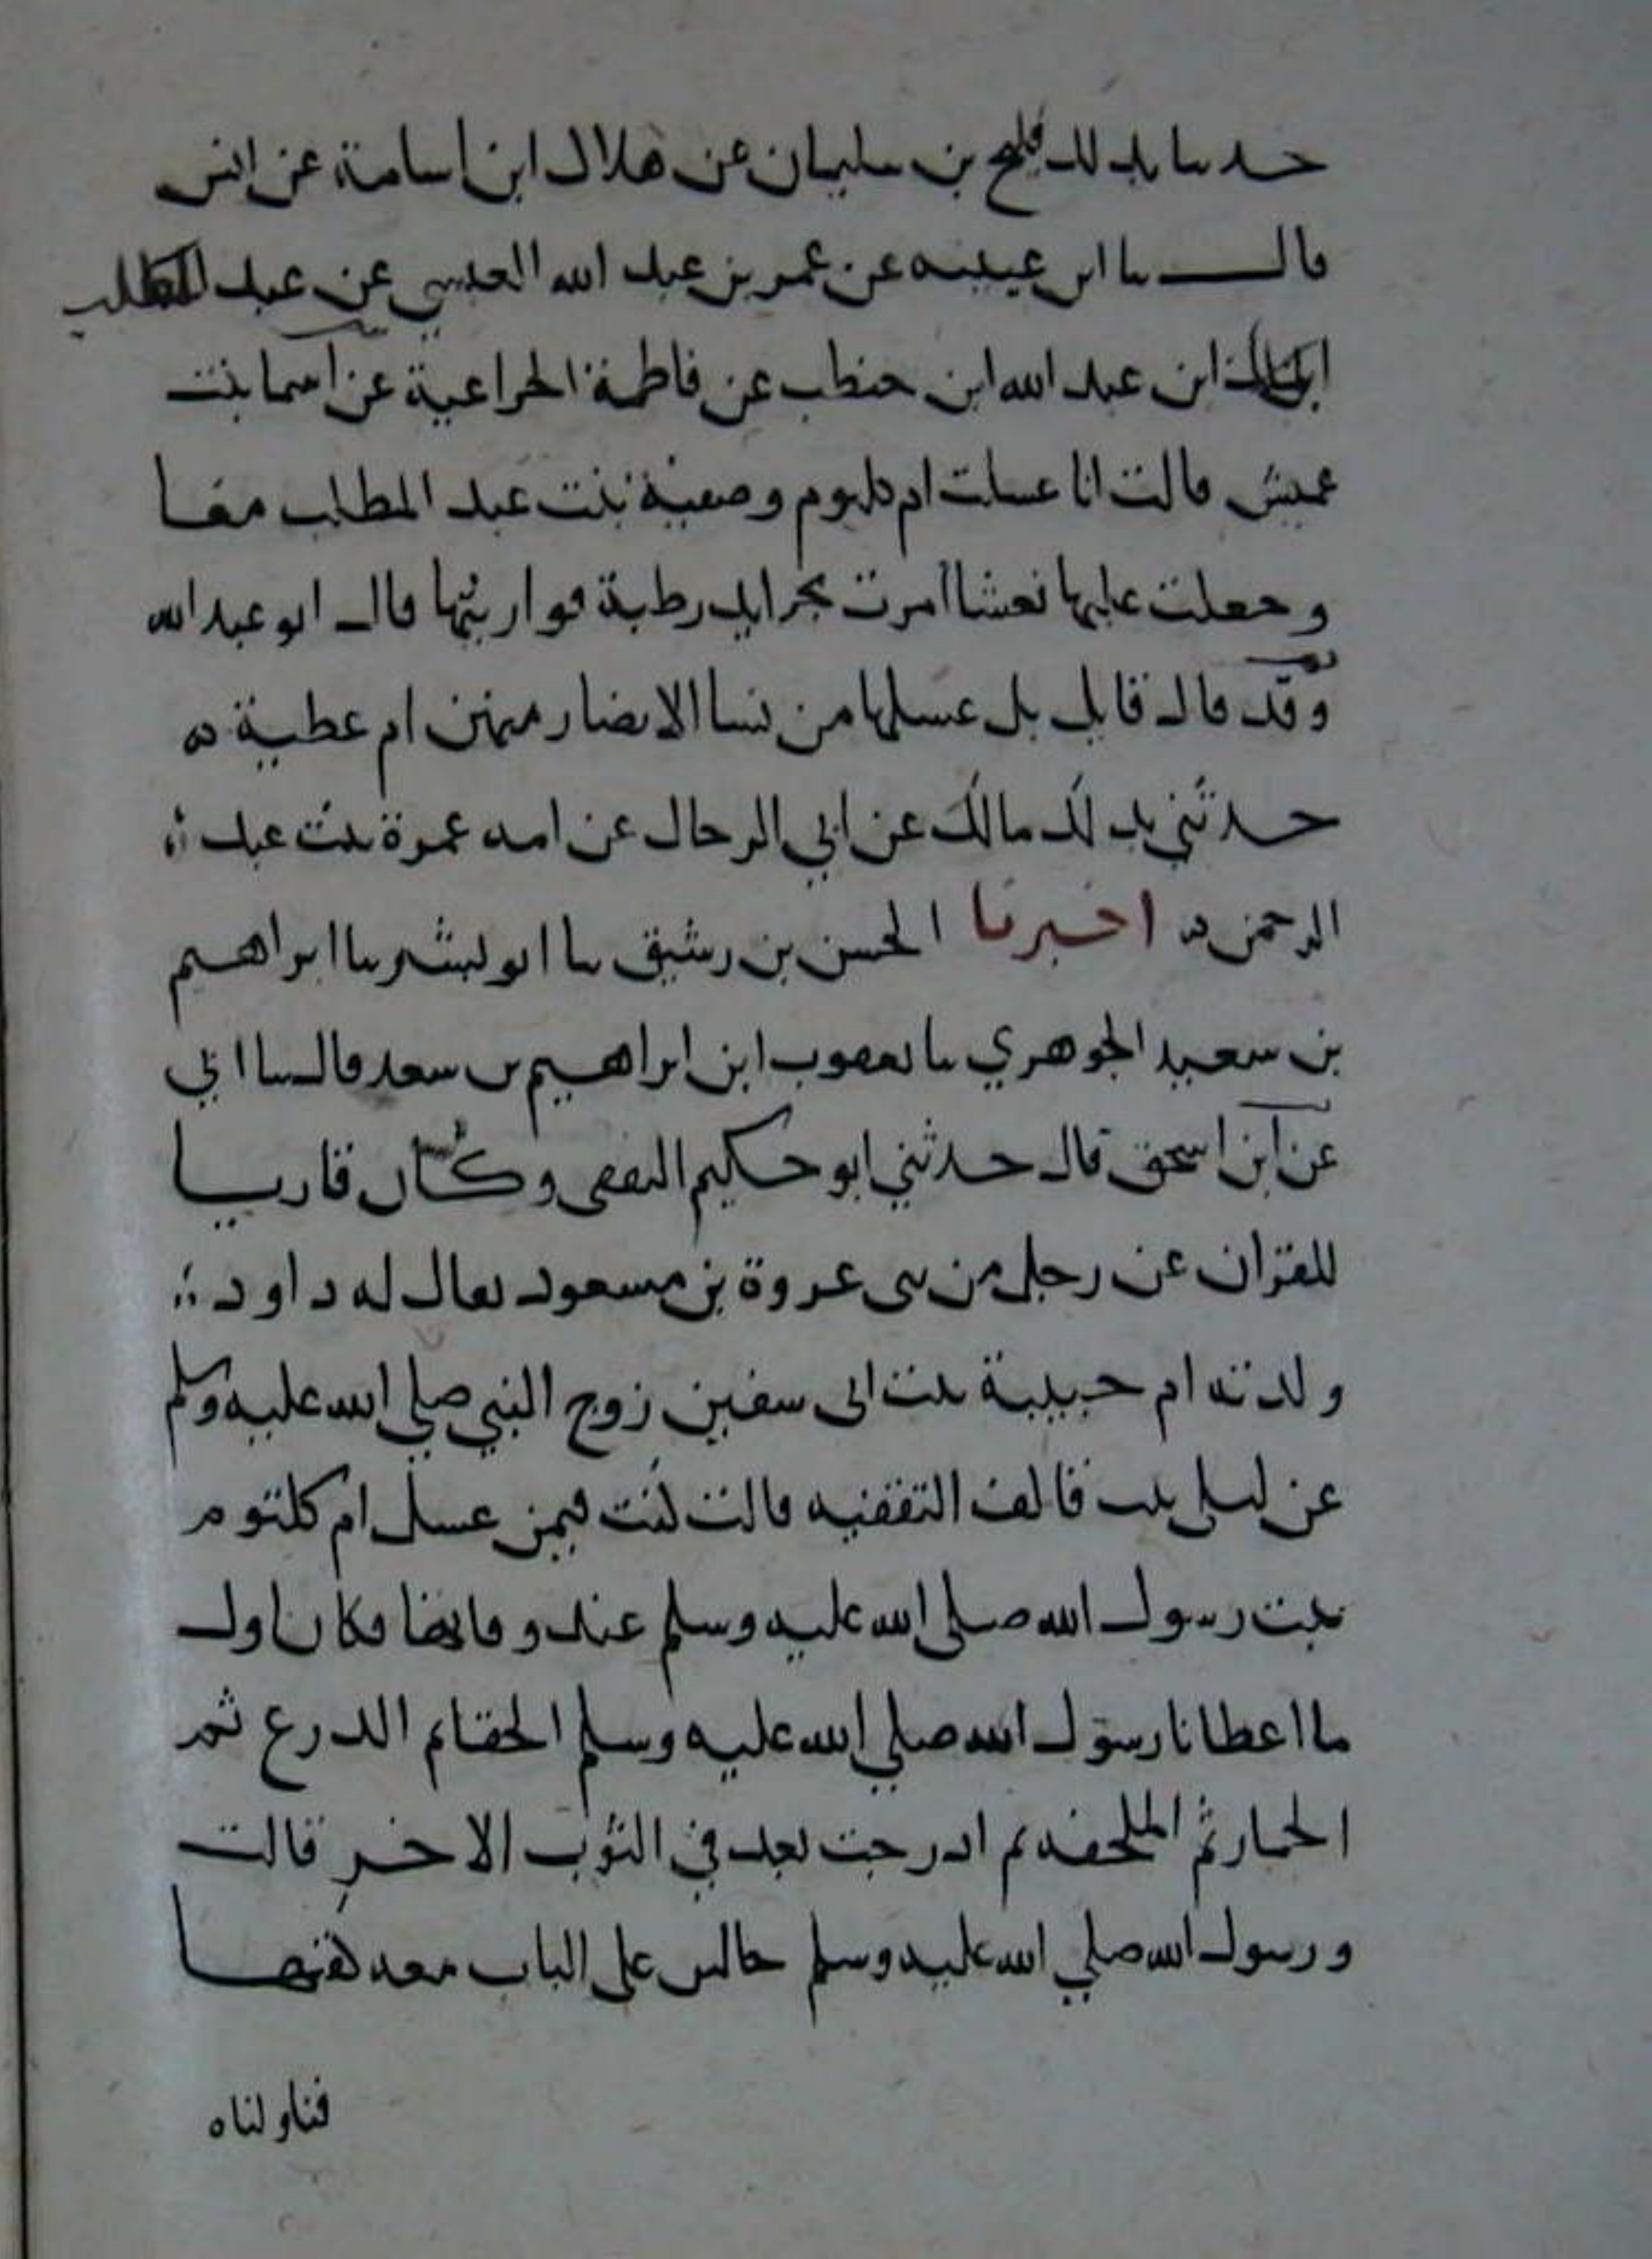 حدثنا بذلك فليح بن سليمان عن هلال ابن اسامة عن انس
قال نا ابن عيينه عن عمر بن عبد الله العبسي عن عبد المطلب
ابن عبد الله ابن حنطب عن فاطمة الخزاعية عن اسما بنت
عميش قالت انا غسلت ام كلثوم وصفية بنت عبد المطلب معنا
وجعلت عليها نعشا امرت بجرايد رطبة فواريتها قال ابو عبد الله
وقد قال قايل بل غسلها من نسا الانصار منهن ام عطية ه
حدثني بذلك مالك عن ابي الرجال عن امه عمرة بنت عبد
الرحمن ه اخبرنا الحسن بن رشيق نا ابو بشر نا ابراهيم
بن سعيد الجوهري نا يعقوب ابن ابراهيم بن سعد قال نا ابي
عن ابن اسحق قال حدثني ابو حكيم الثقفي وكان قاريا
للقران عن رجل من بني عروة بن مسعود يقال له داود
ولدته ام حبيبة بنت ابي سفين زوج النبي صلي الله عليه وسلم
عن ليلى بنت قانف الثقفيه قالت كنت فيمن غسل ام كلثوم
بنت رسول الله صلى الله عليه وسلم عند وفاتها فكان اول
ما اعطانا رسول الله صلي الله عليه وسلم الحقا ثم الدرع ثم
الخمار ثم الملحفه ثم ادرجت بعد في الثوب الاخر قالت
ورسول الله صلي الله عليه وسلم جالس على الباب معه كفنها
فناولناه